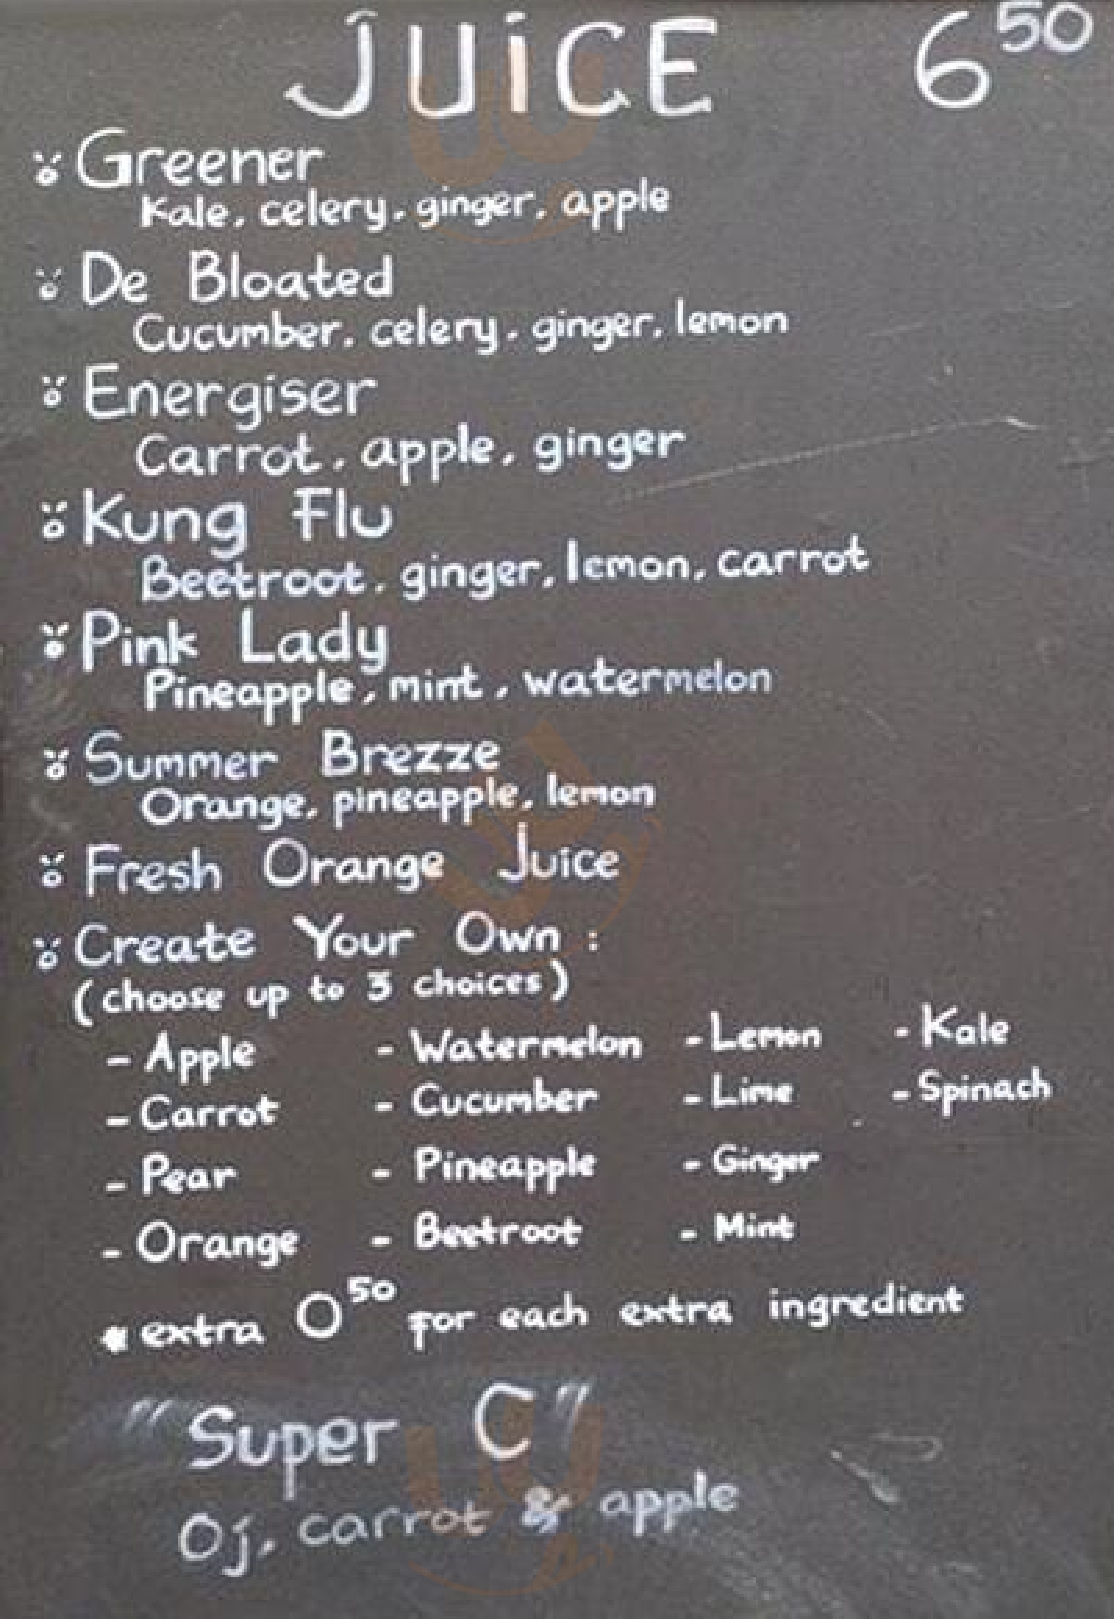 JUICE 6 50
Greener
Kale, celery, ginger, apple
De Bloated
Cucumber, celery, ginger, lemon
Energiser
Carrot, apple, ginger
Kung Flu
Beetroot, ginger, lemon, carrot
Pink Lady
Pineapple, mint, watermelon
Summer Brezze
Orange, pineapple, lemon
Fresh Orange Juice
Create Your Own :
(choose up to 3 choices)
- Apple - Watermelon - Lemon - Kale
- Carrot - Cucumber - Lime - Spinach
- Pear - Pineapple - Ginger
- Orange - Beetroot - Mint
* extra 0 50 for each extra ingredient
"Super C"
Oj, carrot & apple